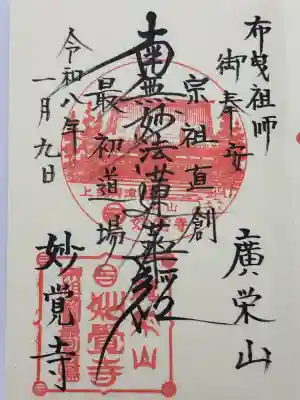 布曳祖師
御奉安
廣栄山
宗祖直創
南無妙法蓮華経
最初道場
妙覚寺
令和八年
一月九日
妙覺寺